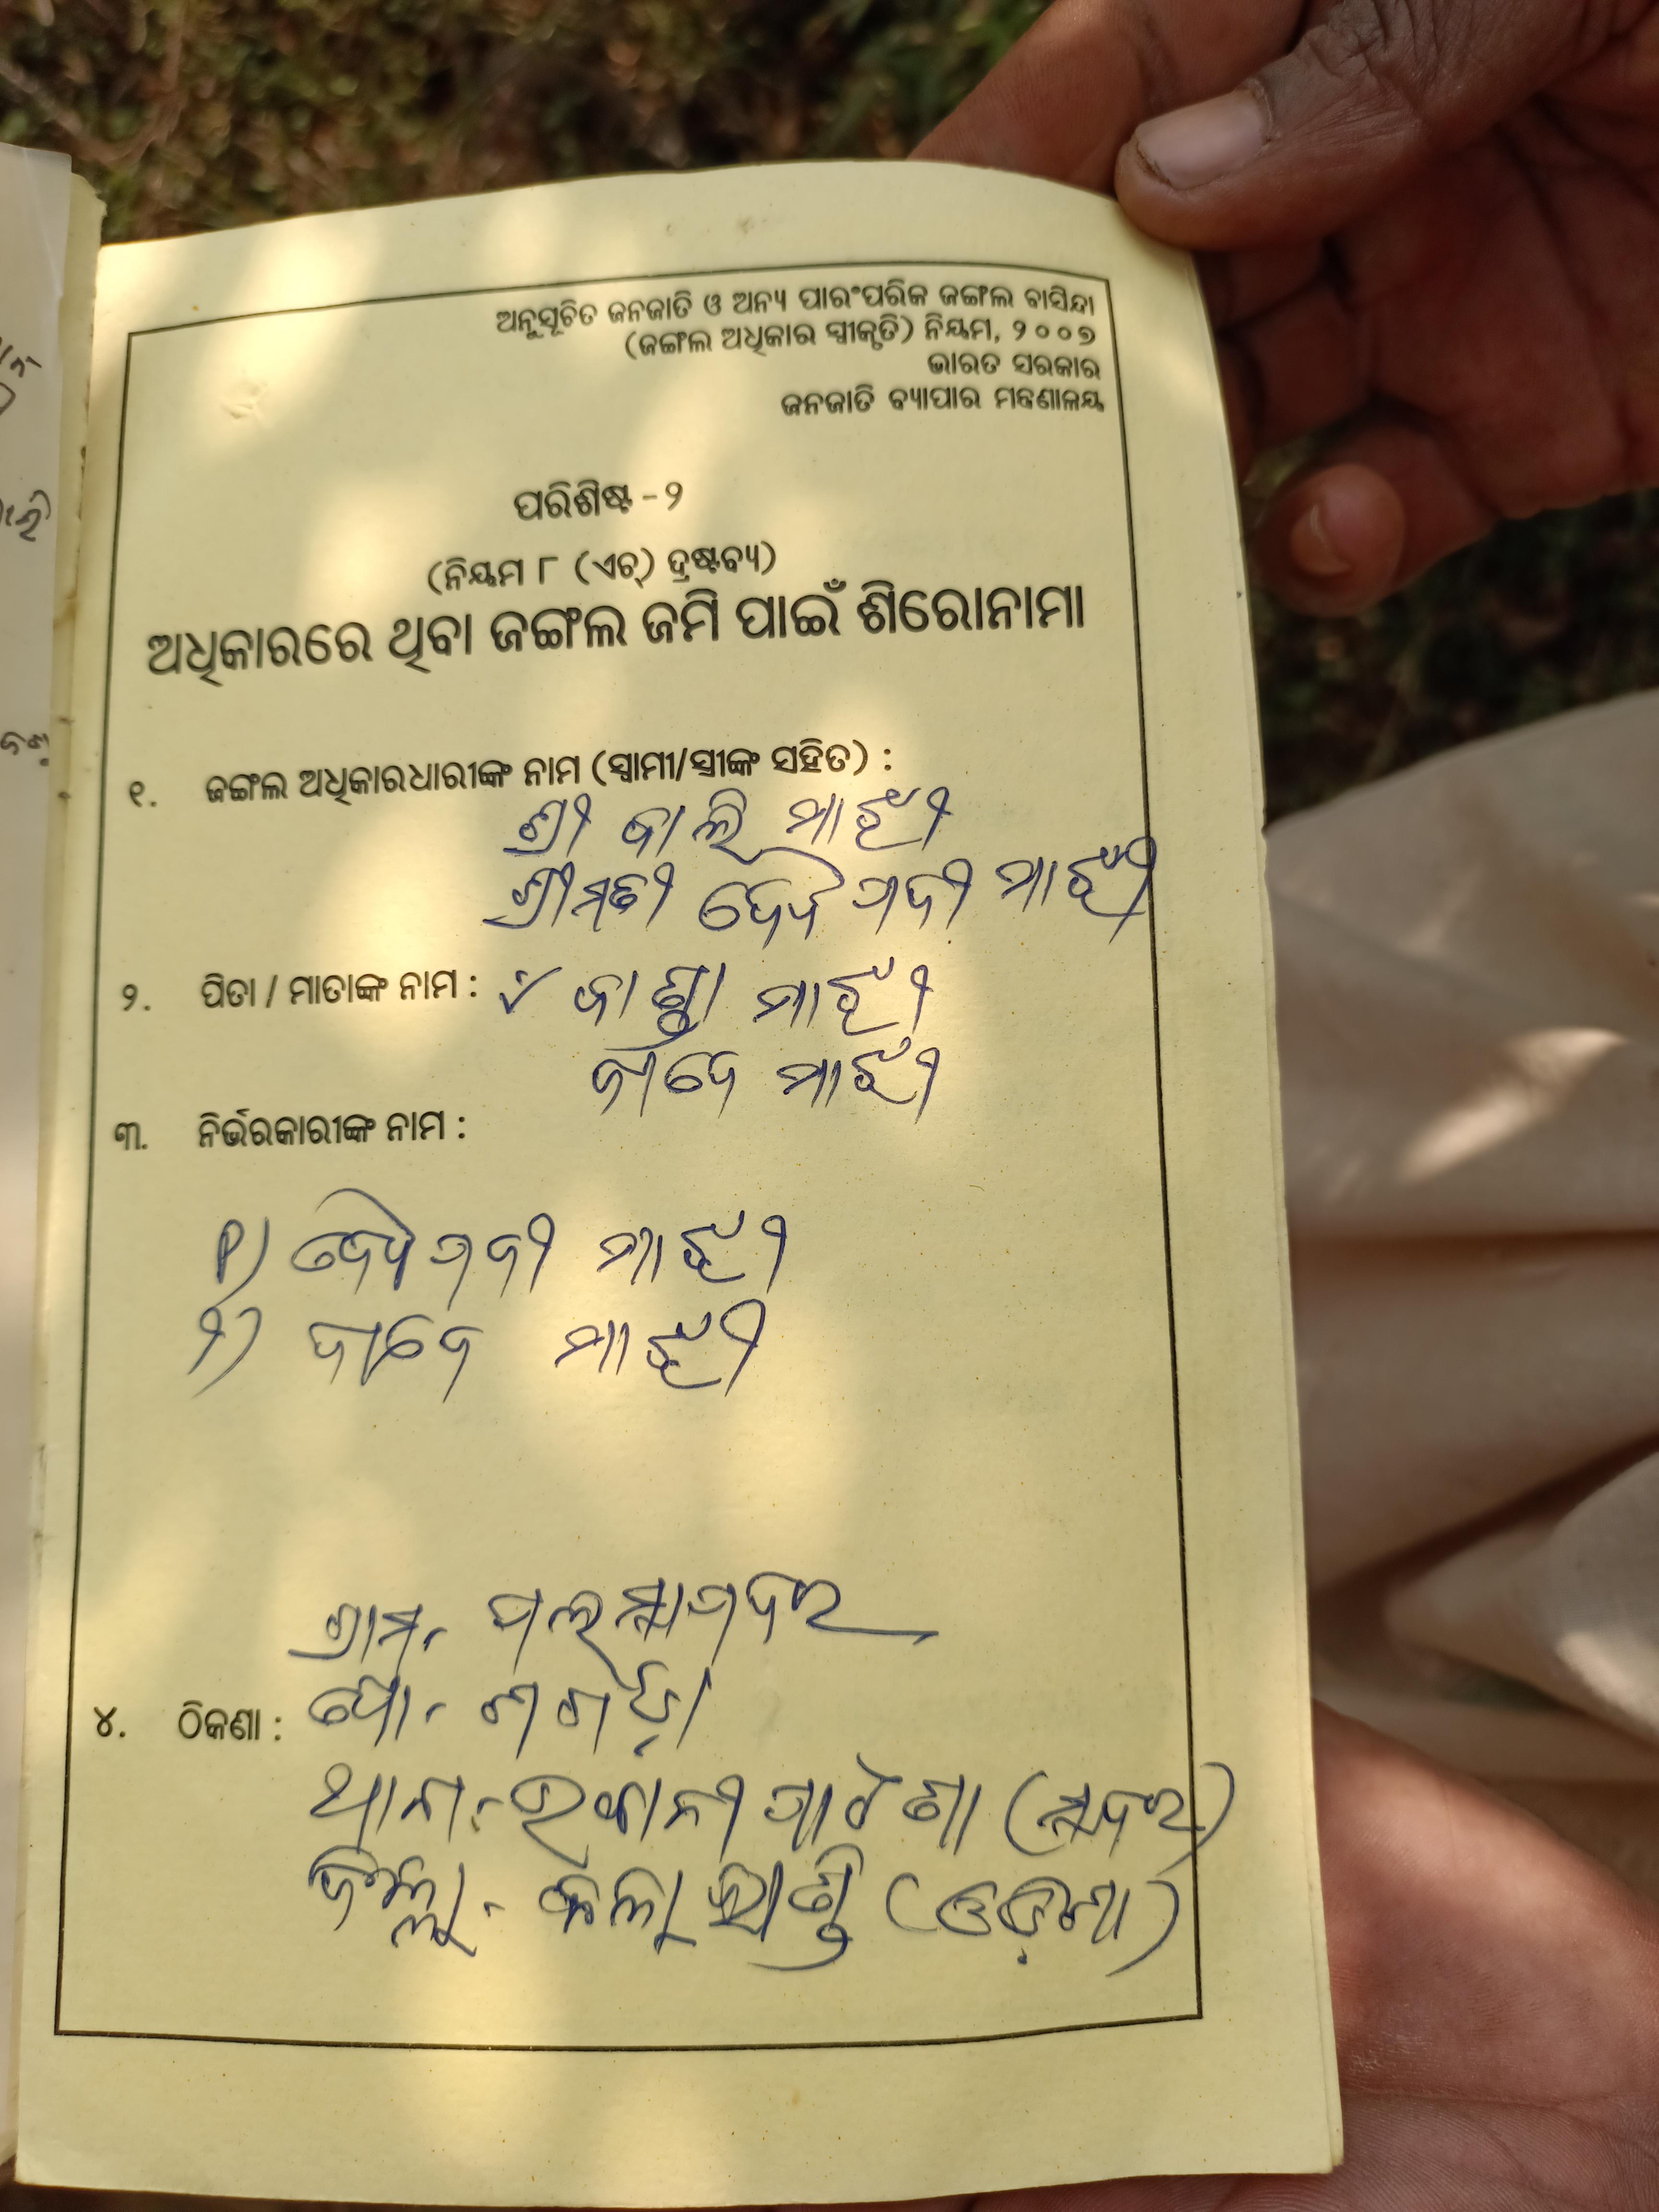 ଅନୁସୂଚିତ ଜନଜାତି ଓ ଅନ୍ୟ ପାରଂପରିକ ଜଙ୍ଗଲ ବାସିନ୍ଦା
(ଜଙ୍ଗଲ ଅଧିକାର ସ୍ୱୀକୃତି) ନିୟମ, ୨୦୦୭
ଭାରତ ସରକାର
ଜନଜାତି ବ୍ୟାପାର ମନ୍ତ୍ରଣାଳୟ
ପରିଶିଷ୍ଟ - ୨
(ନିୟମ ୮ (ଏଚ୍) ଦ୍ରଷ୍ଟବ୍ୟ)
ଅଧିକାରରେ ଥିବା ଜଙ୍ଗଲ ଜମି ପାଇଁ ଶିରୋନାମା
୧. ଜଙ୍ଗଲ ଅଧିକାରଧାରୀଙ୍କ ନାମ (ସ୍ୱାମୀ/ସ୍ତ୍ରୀଙ୍କ ସହିତ) :
ଶ୍ରୀ ବାଲି ମାଝୀ
ଶ୍ରୀମତୀ ମାଝୀ
୨. ପିତା / ମାତାଙ୍କ ନାମ : ମାଝୀ
ମାଝୀ
୩. ନିର୍ଭରକାରୀଙ୍କ ନାମ :
୧) ମାଝୀ
୨) ମାଝୀ
ଗ୍ରାମ-
୪. ଠିକଣା : ପୋ-
ଥାନା- ଭବାନୀପାଟଣା (ସଦର)
ଜିଲ୍ଲା- କଳାହାଣ୍ଡି (ଓଡ଼ିଶା)